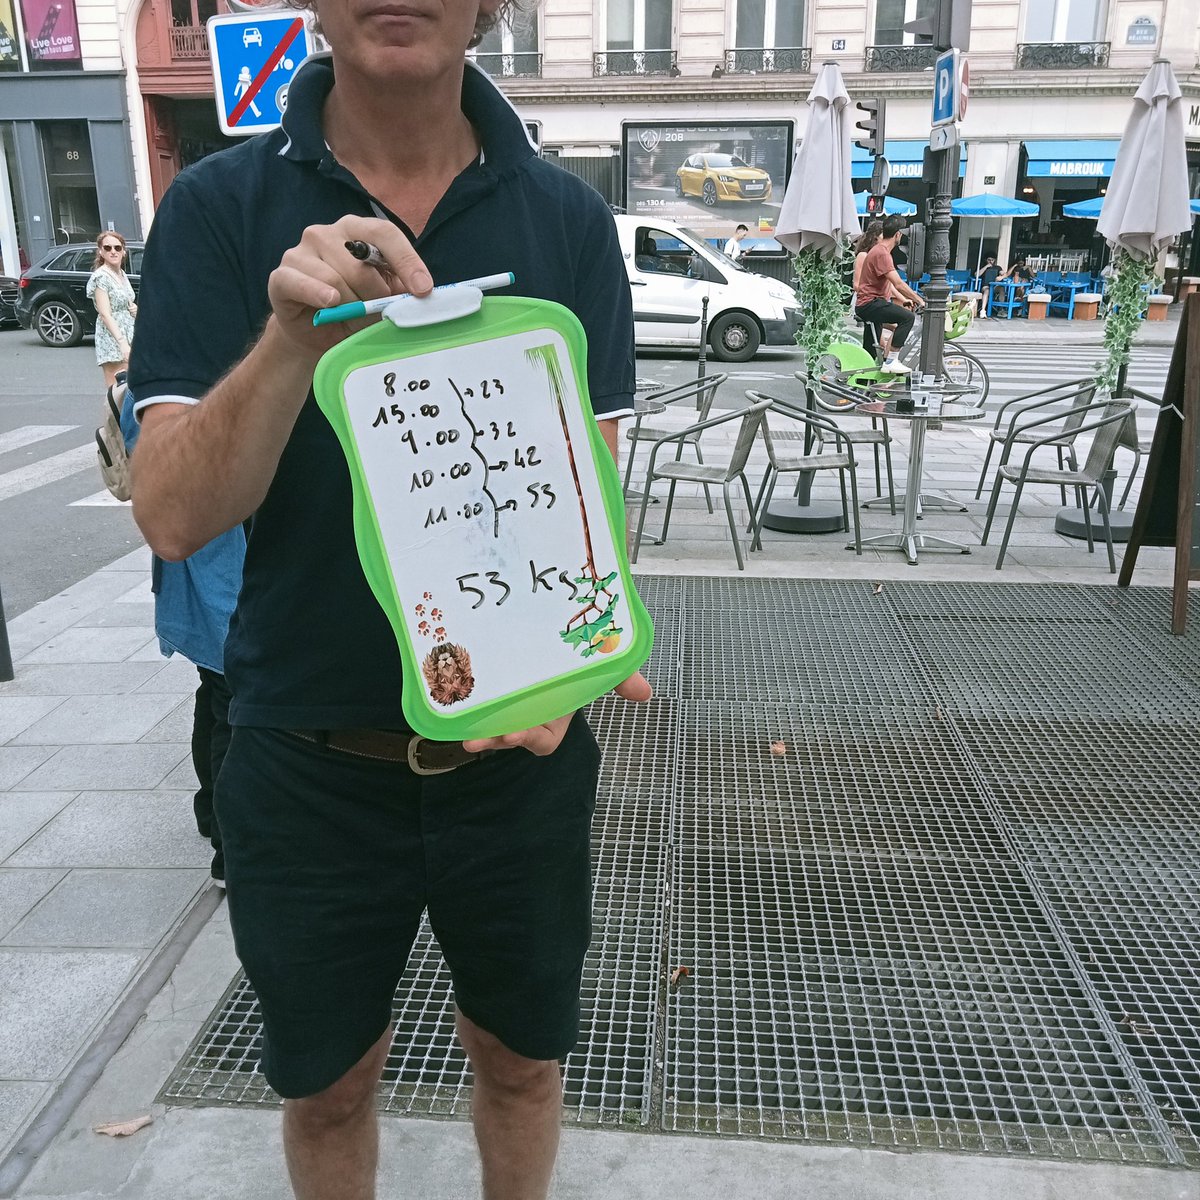 8.00
15.00 → 23
9.00 → 32
10.00 → 42
11.00 → 53
53 kg
Live Love
68
64
RUE
P
208
DÈS 130€
MABROUK
MABROUK